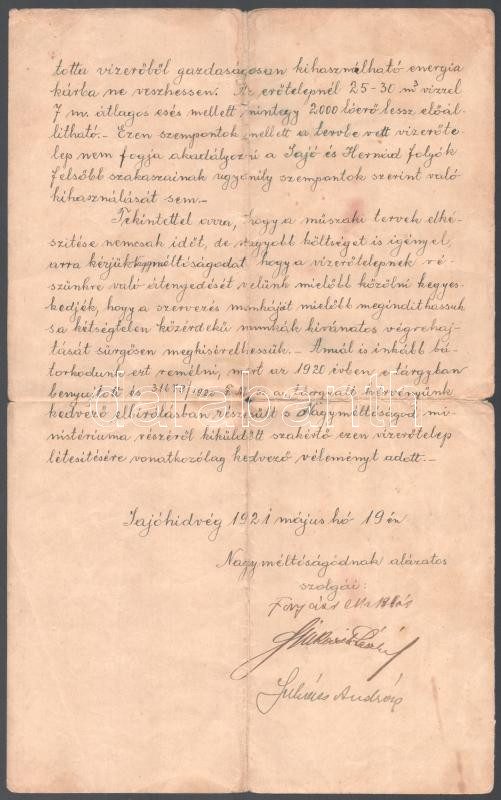 totta vizerőből gazdaságosan kihasználható energia
kárba ne veszhessen. Az erőtelepnél 25-30 m³ vizzel
7 m. átlagos esés mellett mintegy 2000 lóerő lessz előál-
litható.- Ezen szempontok mellett a tervbe vett vizerőte-
lep nem fogja akadályozni a Sajó és Hernád folyók
felsőbb szakaszainak ugyanily szempontok szerint való
kihasználását sem.-
Tekintettel arra, hogy a műszaki tervek elké-
szitése nemcsak időt, de nagyobb költséget is igényel,
arra kérjük Nagyméltóságodat hogy a vizerőtelepnek ré-
szünkre való átengedését velünk mielőbb közölni kegyes-
kedjék, hogy a szervezés munkáját mielőbb megindithassuk
s a kétségtelen közérdekű munkák kivánatos végrehaj-
tását sürgősen megkisérelhessük.- Annál is inkább bá-
torkodunk ezt remélni, mert az 1920 évben e tárgykban
benyujtott és /1920 sz. a. tárgyalt kérvényünk
kedvező elbírálásban részesült s Nagyméltóságod mi-
nisztériuma részéről kiküldött szakértő ezen vizerőtelep
létesitésére vonatkozólag kedvező véleményt adott.-
Sajóhidvég 1921 május hó 19 én
Nagyméltóságodnak alázatos
szolgái:
Miklós
Lukács András
darabanth